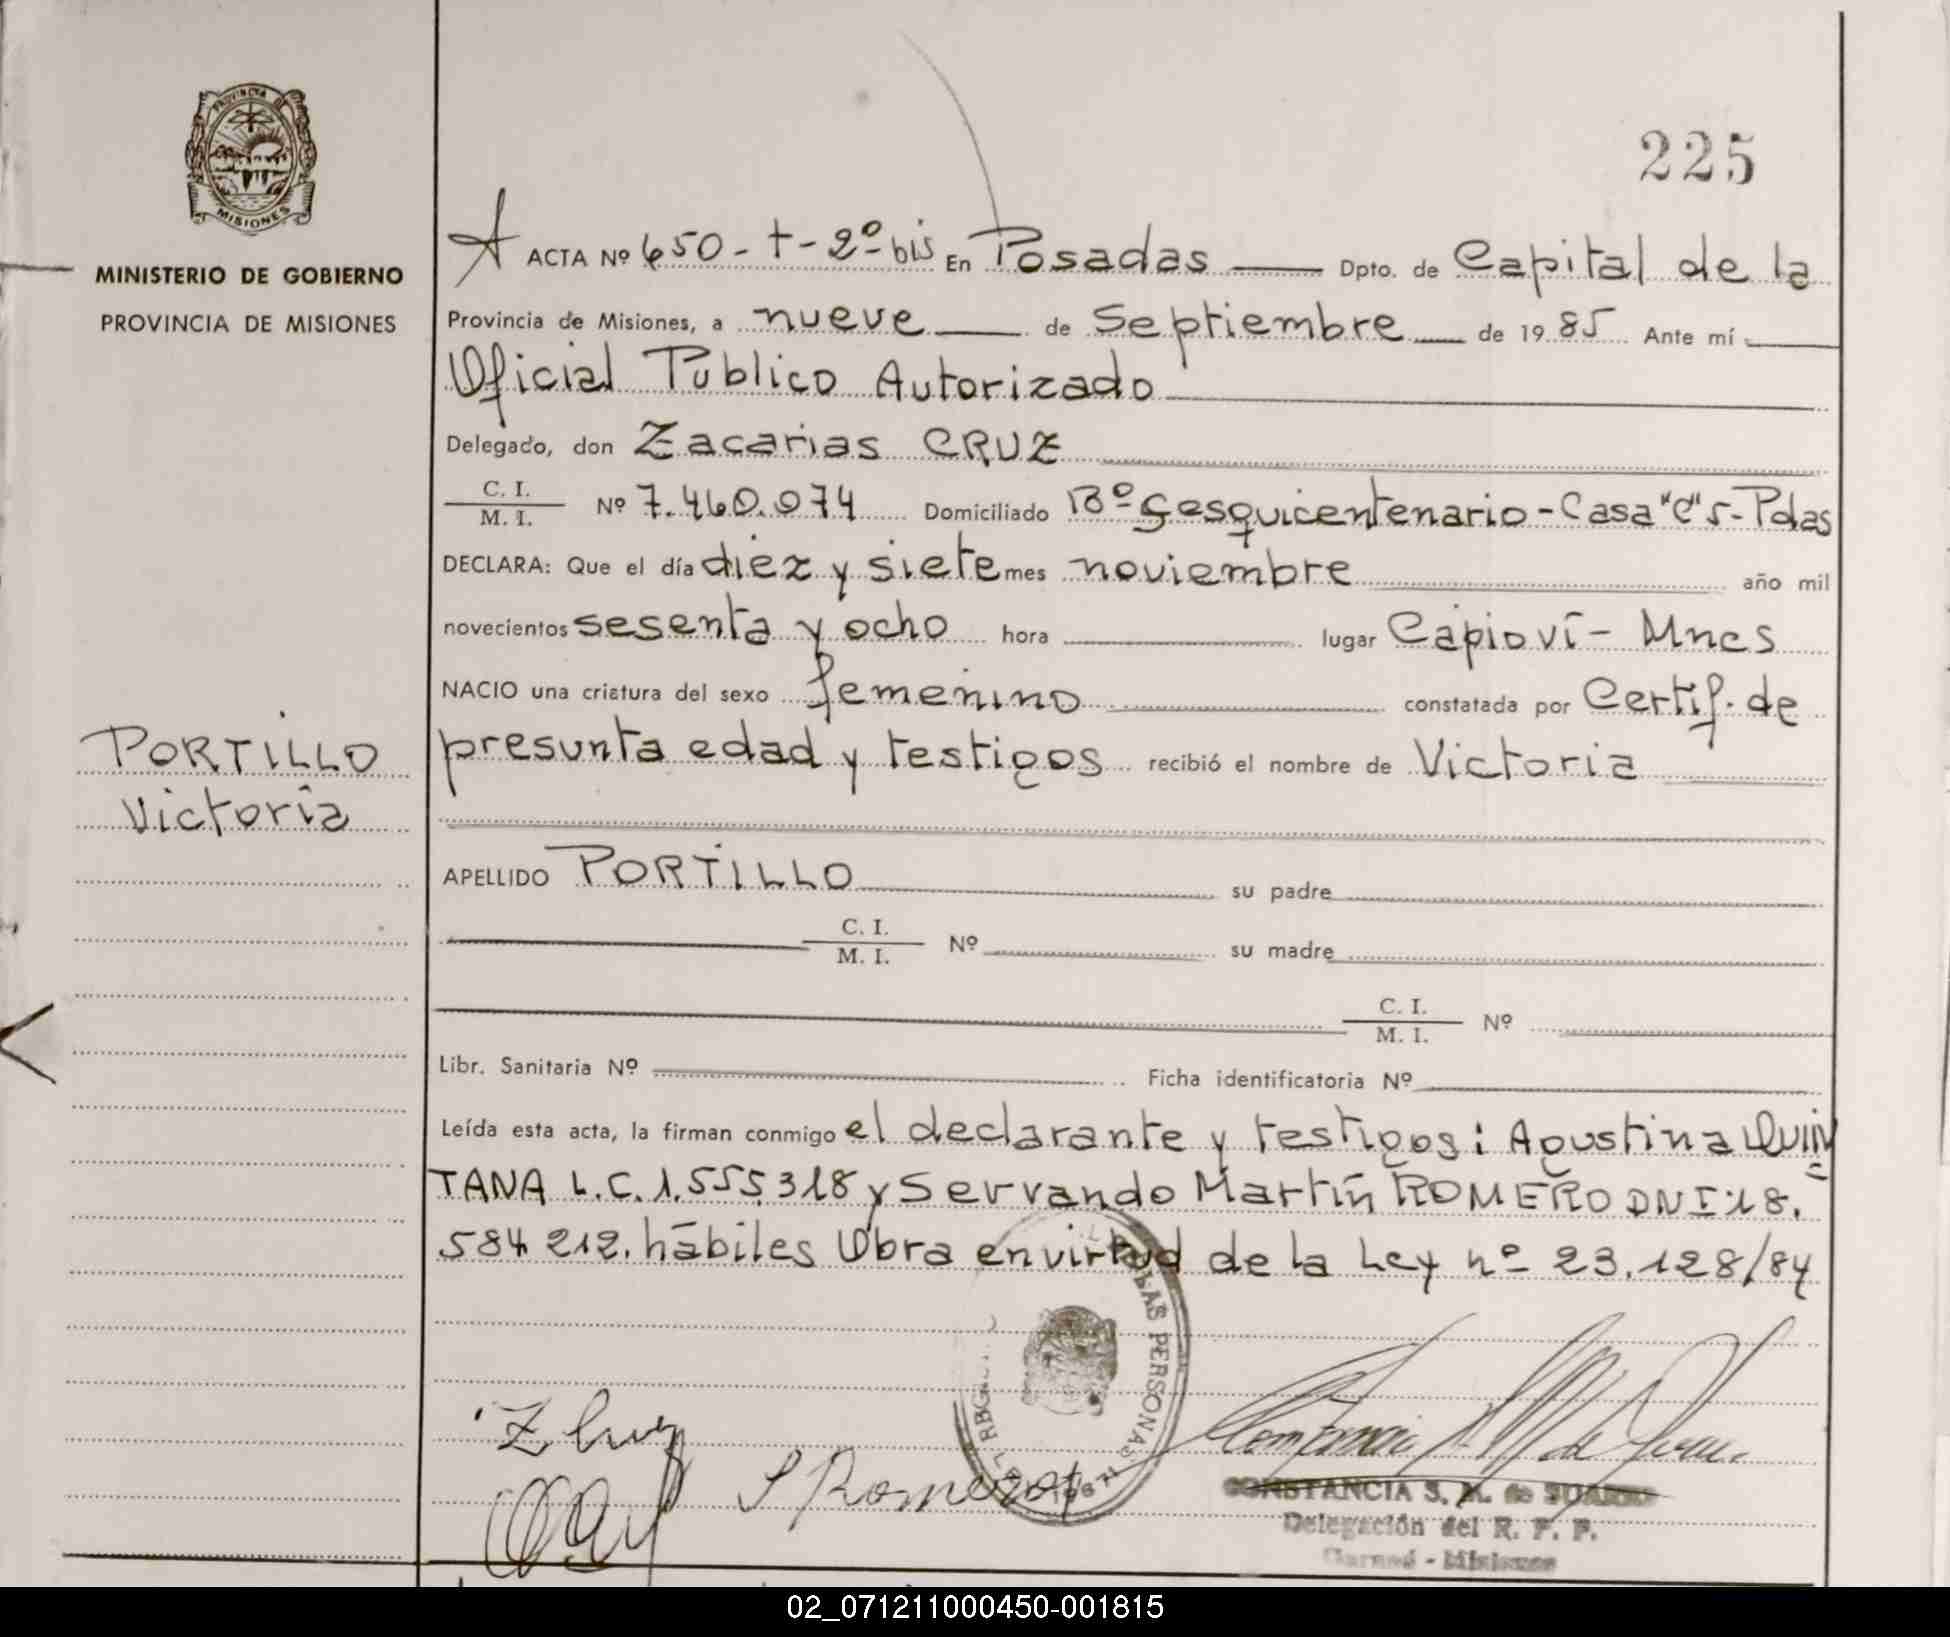 PROVINCIA DE
MISIONES
MINISTERIO DE GOBIERNO
PROVINCIA DE MISIONES
225
ACTA Nº 650-t-2º bis En Posadas Dpto. de Capital de la
Provincia de Misiones, a nueve de Septiembre de 1985 Ante mí
Oficial Público Autorizado
Delegado, don Zacarias CRUZ
C. I.
M. I.
Nº 7.460.074 Domiciliado Bº Sesquicentenario - Casa "C" 5 - Pdas
DECLARA: Que el día diez y siete mes noviembre año mil
novecientos sesenta y ocho hora lugar Capioví - Mnes
NACIO una criatura del sexo femenino constatada por Certif. de
presunta edad y testigos recibió el nombre de Victoria
PORTILLO
Victoria
APELLIDO PORTILLO su padre
C. I.
M. I.
Nº su madre
C. I.
M. I.
Nº
Libr. Sanitaria Nº Ficha identificatoria Nº
Leída esta acta, la firman conmigo el declarante y testigos: Agustina QUIN
TANA L.C. 1.555.318 y Servando Martín ROMERO DNI 18.
584 212. hábiles Obra en virtud de la Ley nº 23.128/84
LAS PERSONAS
Z Cruz
S Romero
CONSTANCIA S. M. de
Delegación del R. P. P.
- Misiones
02_071211000450-001815